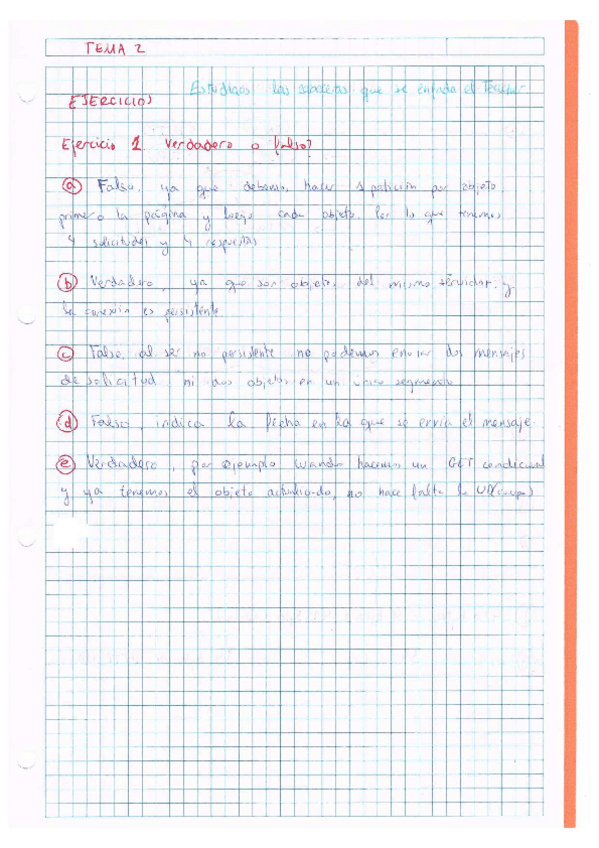 TEMA 2
Estudiaos las cabeceras que se enfada el Teacher
EJERCICIOS
Ejercicio 1 Verdadero o falso?
a Falso, ya que debemos hacer 1 petición por objeto,
primero la página y luego cada objeto. Por lo que tenemos
4 solicitudes y 4 respuestas
b Verdadero, ya que son objetos del mismo servidor y
la conexión es persistente
c Falso, al ser no persistente no podemos enviar dos mensajes
de solicitud ni dos objetos en un único segmento
d Falso, indica la fecha en la que se envía el mensaje.
e Verdadero, por ejemplo cuando hacemos un GET condicional
y ya tenemos el objeto actualizado, no hace falta la (cuerpo)